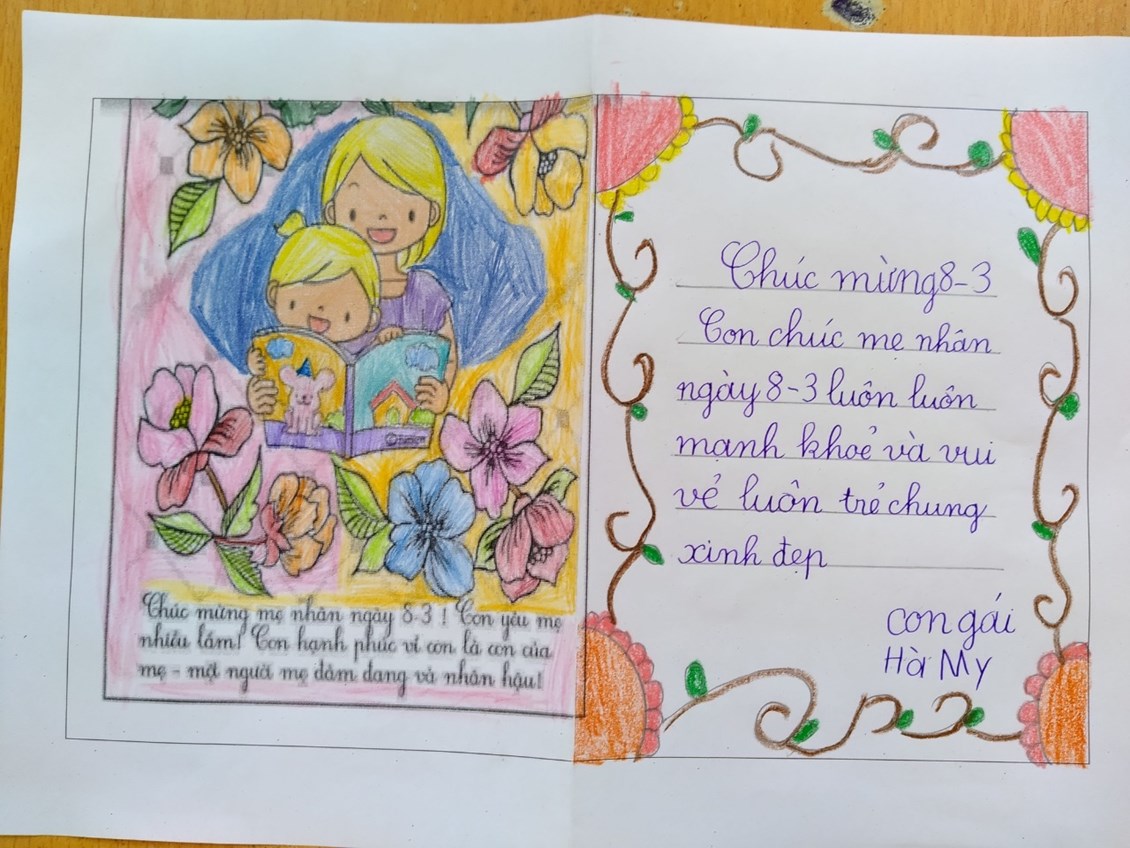 Chúc mừng mẹ nhân ngày 8-3 ! Con yêu mẹ
nhiều lắm! Con hạnh phúc vì con là con của
mẹ - một người mẹ đảm đang và nhân hậu!
Chúc mừng 8-3
Con chúc mẹ nhân
ngày 8-3 luôn luôn
mạnh khoẻ và vui
vẻ luôn trẻ chung
xinh đẹp
con gái
Hà My